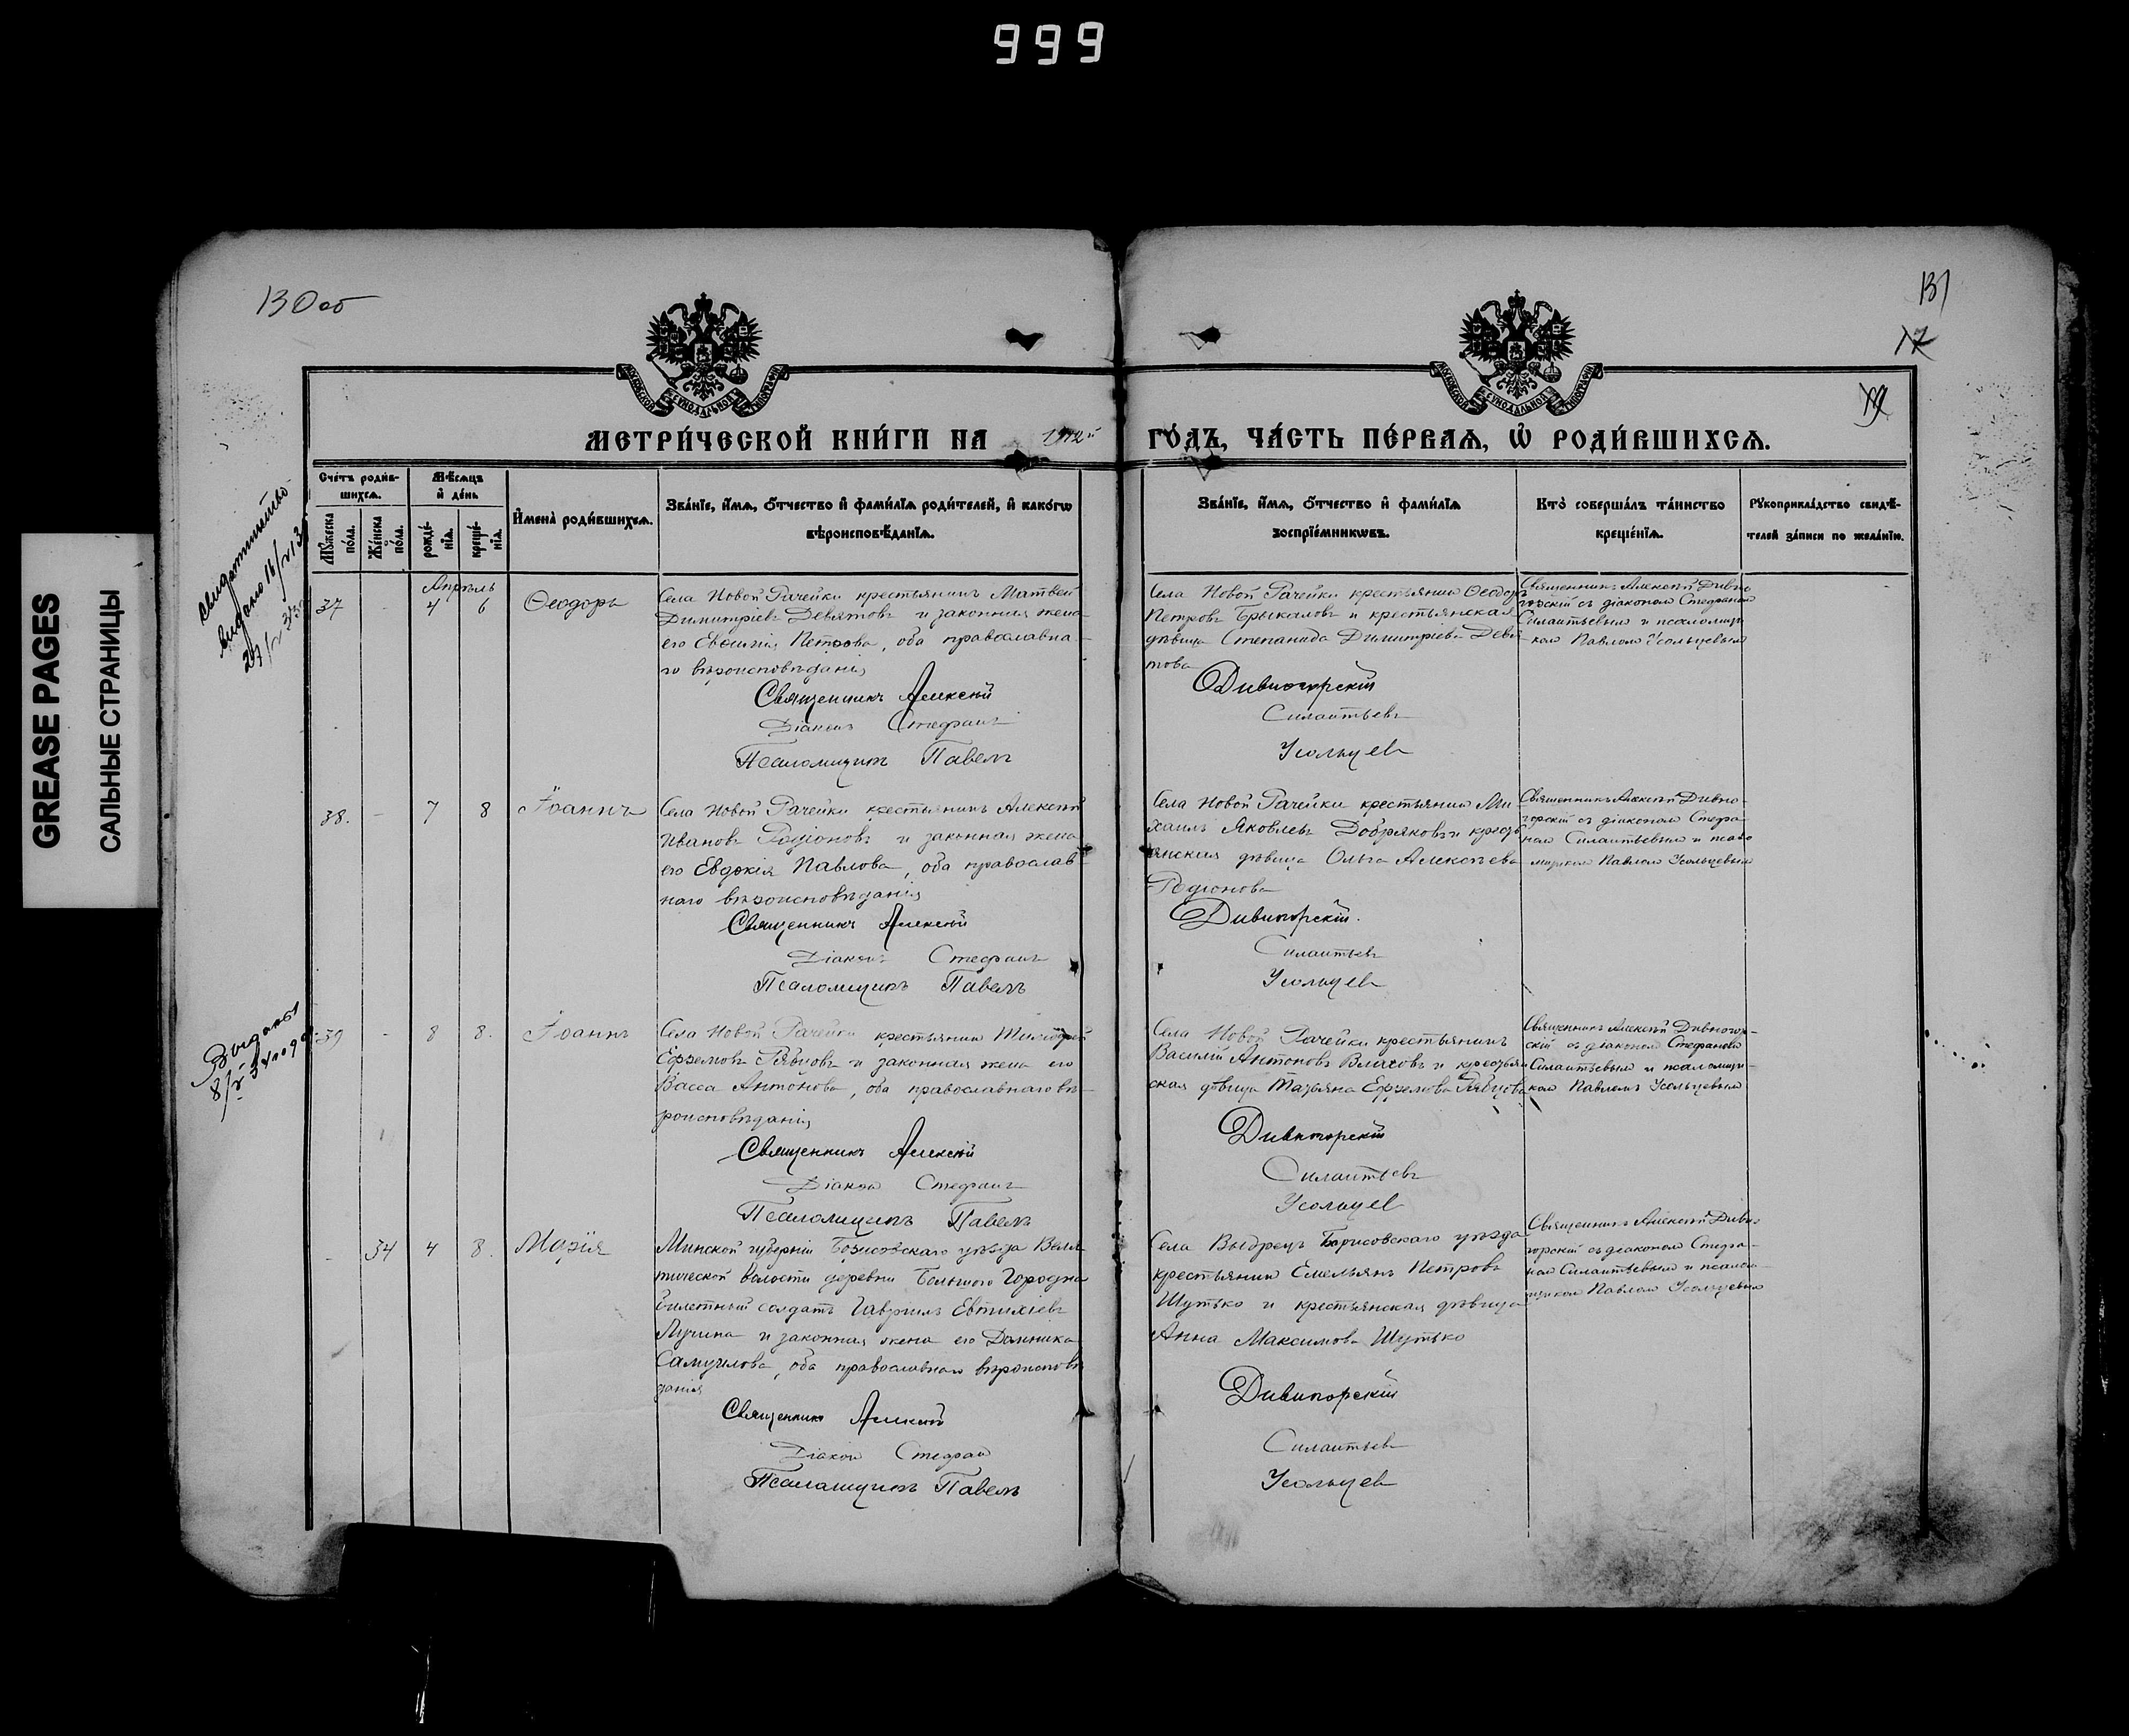 999
GREASE PAGES
САЛЬНЫЕ СТРАНИЦЫ
130об
131
17
МЕТРИ́ЧЕСКОЙ КНИ́ГИ НА 1912й ГО́ДЪ, ЧА́СТЬ ПЕ́РВАѦ, Ѡ҆ РОДИ́ВШИХСѦ.
Сче́тъ роди́в-
шихсѧ.
Мѣ́сѧцъ
и҆ де́нь
Мꙋ́жеска
по́ла.
Же́нска
по́ла.
рожде́-
нїѧ.
креще́-
нїѧ.
И҆мена̀ роди́вшихсѧ.
Зва́нїе, и҆́мѧ, ѻ҆́тчество и҆ фами́лїѧ роди́телей, и҆ како́гѡ
вѣроисповѣ́данїѧ.
Зва́нїе, и҆́мѧ, ѻ҆́тчество и҆ фами́лїѧ
воспрїе́мникѡвъ.
Кто̀ соверша́лъ та́инство
креще́нїѧ.
Рꙋкоприкла́дство свидѣ́-
телей за́писи по жела́нїю.
Свидетельство
выдано
Апрѣль
37 - 4 6 Ѳеодоръ
Села Новой Рачейки крестьянинъ Матвей
Димитріевъ Девятовъ и законная жена
его Евѳимія Петрова, оба православна-
го вѣроисповѣданія
Священникъ Алексій
Діаконъ Стефанъ
Псаломщикъ Павелъ
Села Новой Рачейки крестьянинъ Ѳеодоръ
Петровъ Брыкаловъ и крестьянская
дѣвица Степанида Димитріева Девя-
това
Дивногорскій
Силантьевъ
Усольцев
Священникъ Алексій Дивно-
горскій съ діакономъ Стефаномъ
Силантьевымъ и псаломщи-
комъ Павломъ Усольцевымъ
38. - 7 8 Іоаннъ
Села Новой Рачейки крестьянинъ Алексій
Ивановъ Родіоновъ и законная жена
его Евдокія Павлова, оба православ-
наго вѣроисповѣданія
Священникъ Алексій
Діаконъ Стефанъ
Псаломщикъ Павелъ
Села Новой Рачейки крестьянинъ Ми-
хаилъ Яковлевъ Добряковъ и кресть-
янская дѣвица Ольга Алексѣева
Родіонова
Дивногорскій.
Силантьев
Усольцев
Священникъ Алексій Дивно-
горскій съ діакономъ Стефа-
номъ Силантьевымъ и псало
мщикомъ Павломъ Усольцевымъ
Выданы
39 - 8 8. Іоаннъ
Села Новой Рачейки крестьянинъ
Ефремовъ Рябцовъ и законная жена его
Васса Антонова, оба православнаго вѣ-
роисповѣданія
Священникъ Алексій
Діаконъ Стефанъ
Псаломщикъ Павелъ
Села Новой Рачейки крестьянинъ
Василій Антоновъ Влахов и крестьян
ская дѣвица Татьяна Ефремова Рябцова
Дивногорскій
Силантьевъ
Усольцев
Священникъ Алексій Дивногор-
скій съ діакономъ Стефаномъ
Силантьевымъ и псаломщи-
комъ Павломъ Усольцевымъ
- 34 4 8. Марія
Минской губерніи Борисовскаго уѣзда Веля
тической волости деревни Большого Городна
билетный солдатъ Гавріилъ Евтихіевъ
Лучина и законная жена его Домника
Самуилова, оба православнаго вѣроисповѣ
данія
Священникъ Алексій
Діаконъ Стефан
Псаломщикъ Павелъ
Села Выдрецъ Борисовскаго уѣзда
крестьянинъ Емельянъ Петровъ
Шутько и крестьянская дѣвица
Анна Максимова Шутько
Дивногорскій
Силантьев
Усольцев
Священникъ Алексій Дивно
горскій съ діакономъ Стефа-
номъ Силантьевымъ и псалом-
щикомъ Павломъ Усольцевымъ